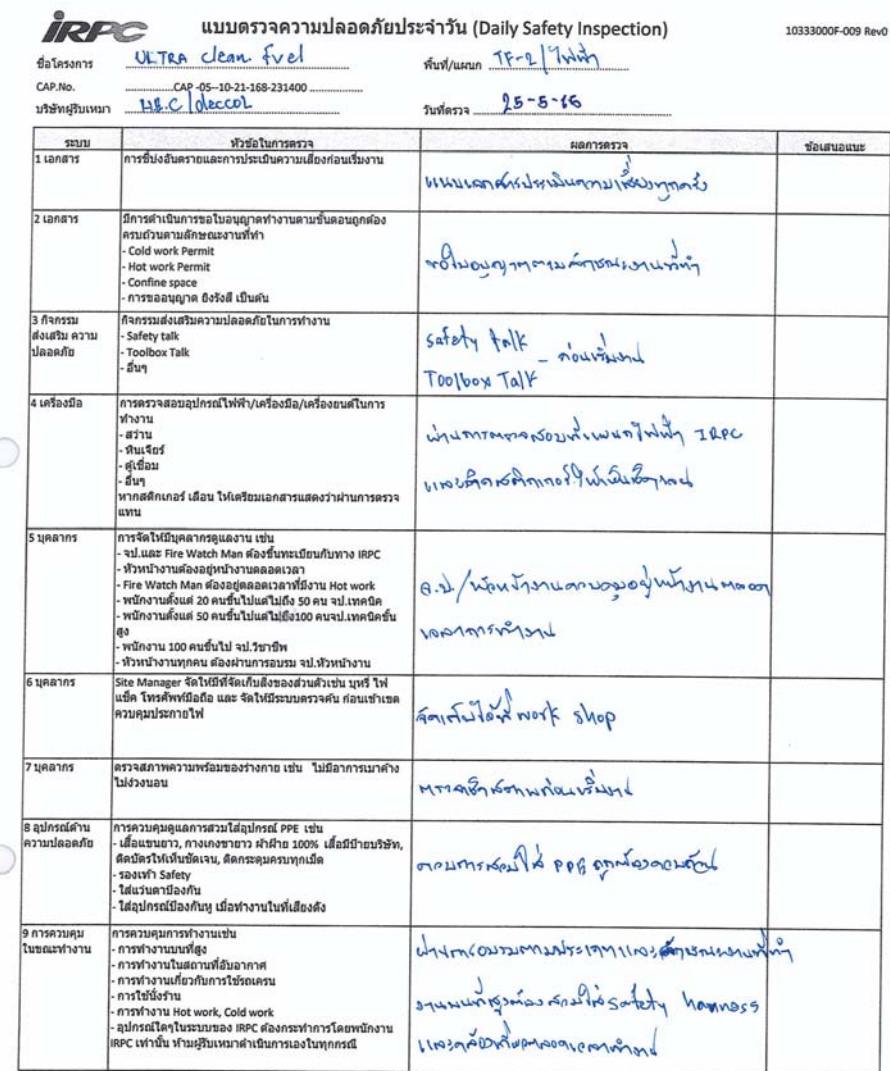 IRPC
แบบตรวจความปลอดภัยประจำวัน (Daily Safety Inspection)
10333000F-009 Rev0
ชื่อโครงการ ULTRA clean fuel
พื้นที่/แผนก TF-2/ไฟฟ้า
CAP.No. CAP -05--10-21-168-231400
บริษัทผู้รับเหมา
วันที่ตรวจ 25-5-16
ระบบ หัวข้อในการตรวจ ผลการตรวจ ข้อเสนอแนะ
1 เอกสาร
การชี้บ่งอันตรายและการประเมินความเสี่ยงก่อนเริ่มงาน
แนบเอกสารประเมินความเสี่ยงทุกครั้ง
2 เอกสาร
มีการดำเนินการขอใบอนุญาตทำงานตามขั้นตอนถูกต้อง
ครบถ้วนตามลักษณะงานที่ทำ
- Cold work Permit
- Hot work Permit
- Confine space
- การขออนุญาต ยิงรังสี เป็นต้น
ขอใบอนุญาตตามลักษณะงานที่ทำ
3 กิจกรรม
ส่งเสริม ความ
ปลอดภัย
กิจกรรมส่งเสริมความปลอดภัยในการทำงาน
- Safety talk
- Toolbox Talk
- อื่นๆ
safety talk
- ก่อนเริ่มงาน
Toolbox Talk
4 เครื่องมือ
การตรวจสอบอุปกรณ์ไฟฟ้า/เครื่องมือ/เครื่องยนต์ในการ
ทำงาน
- สว่าน
- หินเจียร์
- ตู้เชื่อม
- อื่นๆ
หากสติกเกอร์ เลือน ให้เตรียมเอกสารแสดงว่าผ่านการตรวจ
แทน
ผ่านการตรวจสอบที่แผนกไฟฟ้า IRPC
และติดสติกเกอร์ให้เห็นชัดเจน
5 บุคลากร
การจัดให้มีบุคลากรดูแลงาน เช่น
- จป.และ Fire Watch Man ต้องขึ้นทะเบียนกับทาง IRPC
- หัวหน้างานต้องอยู่หน้างานตลอดเวลา
- Fire Watch Man ต้องอยู่ตลอดเวลาที่มีงาน Hot work
- พนักงานตั้งแต่ 20 คนขึ้นไปแต่ไม่ถึง 50 คน จป.เทคนิค
- พนักงานตั้งแต่ 50 คนขึ้นไปแต่ไม่ถึง100 คนจป.เทคนิคขั้น
สูง
- พนักงาน 100 คนขึ้นไป จป.วิชาชีพ
- หัวหน้างานทุกคน ต้องผ่านการอบรม จป.หัวหน้างาน
จ.ป./หัวหน้างานควบคุมอยู่หน้างานตลอด
เวลาการทำงาน
6 บุคลากร
Site Manager จัดให้มีที่จัดเก็บสิ่งของส่วนตัวเช่น บุหรี่ ไฟ
แช็ค โทรศัพท์มือถือ และ จัดให้มีระบบตรวจค้น ก่อนเข้าเขต
ควบคุมประกายไฟ
จัดเก็บไว้ที่ work shop
7 บุคลากร
ตรวจสภาพความพร้อมของร่างกาย เช่น ไม่มีอาการเมาค้าง
ไม่ง่วงนอน
ตรวจเช็คสภาพก่อนเริ่มงาน
8 อุปกรณ์ด้าน
ความปลอดภัย
การควบคุมดูแลการสวมใส่อุปกรณ์ PPE เช่น
- เสื้อแขนยาว, กางเกงขายาว ผ้าฝ้าย 100% เสื้อมีป้ายบริษัท,
ติดบัตรให้เห็นชัดเจน, ติดกระดุมครบทุกเม็ด
- รองเท้า Safety
- ใส่แว่นตาป้องกัน
- ใส่อุปกรณ์ป้องกันหู เมื่อทำงานในที่เสียงดัง
การสวมใส่ PPE ถูกต้องครบถ้วน
9 การควบคุม
ในขณะทำงาน
การควบคุมการทำงานเช่น
- การทำงานบนที่สูง
- การทำงานในสถานที่อับอากาศ
- การทำงานเกี่ยวกับการใช้รถเครน
- การใช้นั่งร้าน
- การทำงาน Hot work, Cold work
- อุปกรณ์ใดๆในระบบของ IRPC ต้องกระทำการโดยพนักงาน
IRPC เท่านั้น ห้ามผู้รับเหมาดำเนินการเองในทุกกรณี
ผ่านการอบรมตามประเภทและลักษณะงานที่ทำ
งานบนที่สูงต้องสวมใส่ safety harness
และคล้องเกี่ยวตลอดเวลาทำงาน